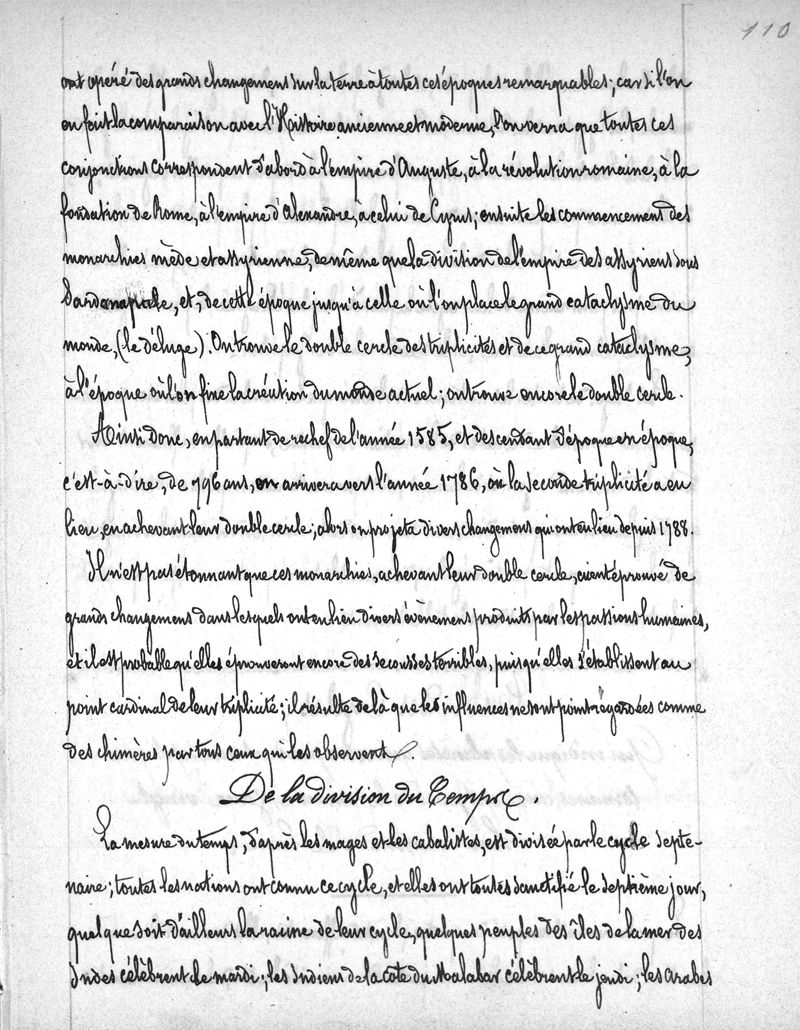 110
ont opéré des grands changemens sur la terre à toutes ces époques remarquables; car si l'on
en fait la comparaison avec l'Histoire ancienne et moderne, l'on verra que toutes ces
conjonctions correspondent d'abord à l'empire d'Auguste, à la révolution romaine, à la
fondation de Rome, à l'empire d'Alexandre, à celui de Cyrus; ensuite les commencement des
monarchies mède et assyrienne, de même que la division de l'empire des assyriens sous
Sardanapale, et, de cette époque jusqu'à celle où l'on place le grand cataclysme du
monde, (le déluge). On trouve le double cercle des triplicités et de ce grand cataclysme,
à l'époque où l'on fixe la création du monde actuel; on trouve encore le double cercle.
Ainsi donc, en partant de rechef de l'année 1585, et descendant d'époque en époque,
c'est-à-dire, de 796 ans, on arrivera vers l'année 1786, où la seconde triplicité a eu
lieu, en achevant leur double cercle; alors on projeta divers changemens qui ont eu lieu depuis 1788.
Il n'est pas étonnant que ces monarchies, achevant leur double cercle, aient éprouvé de
grands changemens dans lesquels ont eu lieu divers évènemens produits par les passions humaines,
et il est probable qu'elles éprouveront encore des secousses terribles, puisqu'elles s'établissent au
point cardinal de leur triplicité; il résulte de là que les influences ne sont point regardées comme
des chimères par tous ceux qui les observent.
De la division du Temps.
La mesure du temps, d'après les mages et les cabalistes, est divisée par le cycle septe-
naire; toutes les nations ont connu ce cycle, et elles ont toutes sanctifié le septième jour,
quelque soit d'ailleurs la racine de leur cycle, quelques peuples des îles de la mer des
Indes célèbrent le mardi; les Indiens de la côte du Malabar célèbrent le jeudi; les Arabes